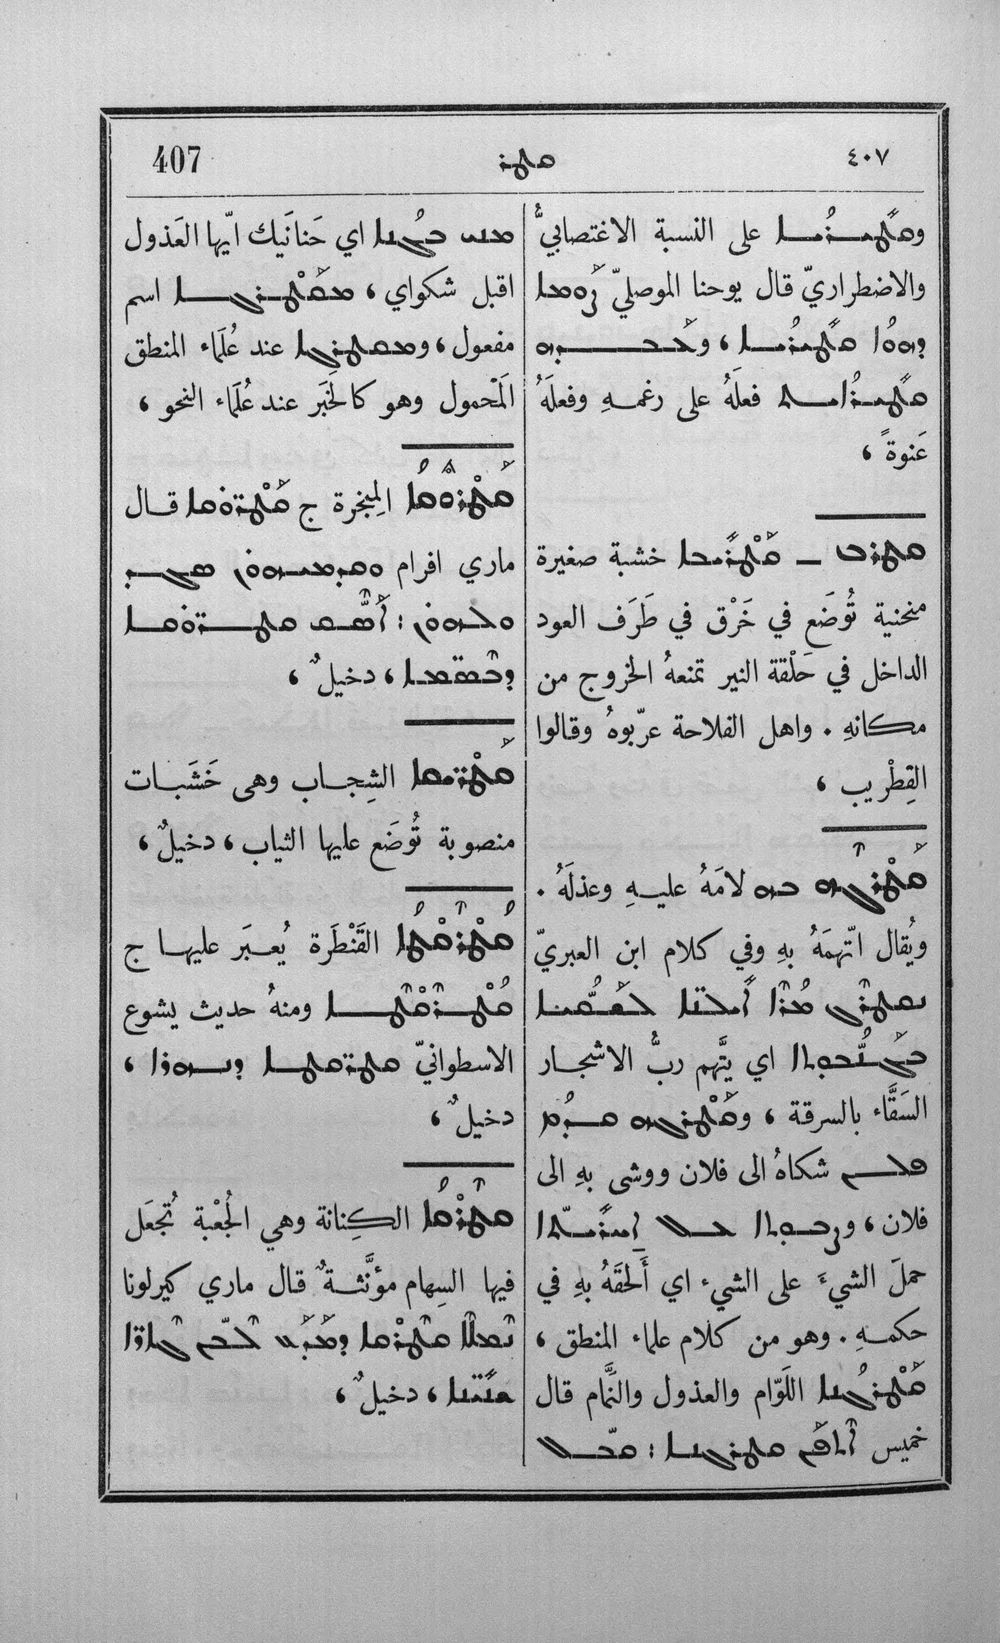 407 ܩܛܪ ٤٠٧
وܩܛܝܪܝܐ على النسبة الاغتصابيُّ
والاضطراريّ قال يوحنا الموصليّ ܨܘܡܐ
ܕܗܘܐ ܩܛܝܪܝܐ ، وܥܒܕܗ
ܩܛܝܪܐܝܬ فعلَهُ على رغمهِ وفعلَهُ
عَنوةً ،
ܩܛܪܒ – ܩܛܪܒܐ خشبة صغيرة
منحنية تُوضَع في خَرْق في طَرَف العود
الداخل في حَلْقة النير تمنعهُ الخروج من
مكانهِ . واهل الفلاحة عرّبوهُ وقالوا
القِطْريب ،
ܩܛܪܓܗ ܒܗ لامَهُ عليهِ وعذلَهُ .
ويُقال اتّهمَهُ بهِ وفي كلام ابن العبريّ
ܢܩܛܪܓ ܡܪܐ ܐܝܠܢܐ
ܒܓܢܒܘܬܐ اي يتَّهم ربُّ الاشجار
السَقَّاء بالسرقة ، وܩܛܪܓܗ ܩܕܡ
ܦܠܢ شكاهُ الى فلان ووشى بهِ الى
فلان ، وܨܒܘܬܐ ܥܠ ܐܚܪܬܐ
حملَ الشيءَ على الشيء اي أَلحقَهُ بهِ في
حكمهِ . وهو من كلام علماء المنطق ،
ܩܛܪܓܢܐ اللَوّام والعذول والنَّمام قال
خميس ܩܛܪܓܢܐ : ܩܒܠ
اي حَنانَيك ايّها العَذول
اقبل شكواي ، ܡܩܛܪܓܐ اسم
مفعول ، وܡܩܛܪܓܐ عند عُلَماء المنطق
المَحْمول وهو كالخَبَر عند عُلَماء النحو ،
المِبخرة ج قال
ماري افرام
، دخيلٌ ،
الشِجاب وهى خَشَبات
منصوبة تُوضَع عليها الثياب ، دخيلٌ ،
ܩܛܪܩܛܐ القَنْطَرة يُعبَر عليها ج
ܩܛܪܩܛܐ ومنهُ حديث يشوع
الاسطوانيّ ܩܛܪܩܛܐ ܕܢܗܪܐ ،
دخيلٌ ،
ܩܛܪܩܐ الكِنانة وهي الجُعْبة تُجعَل
فيها السِهام مؤنَّثةٌ قال ماري كيرلونا
، دخيلٌ ،